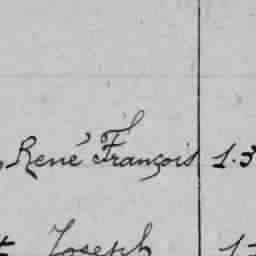 René François 1.3
Joseph